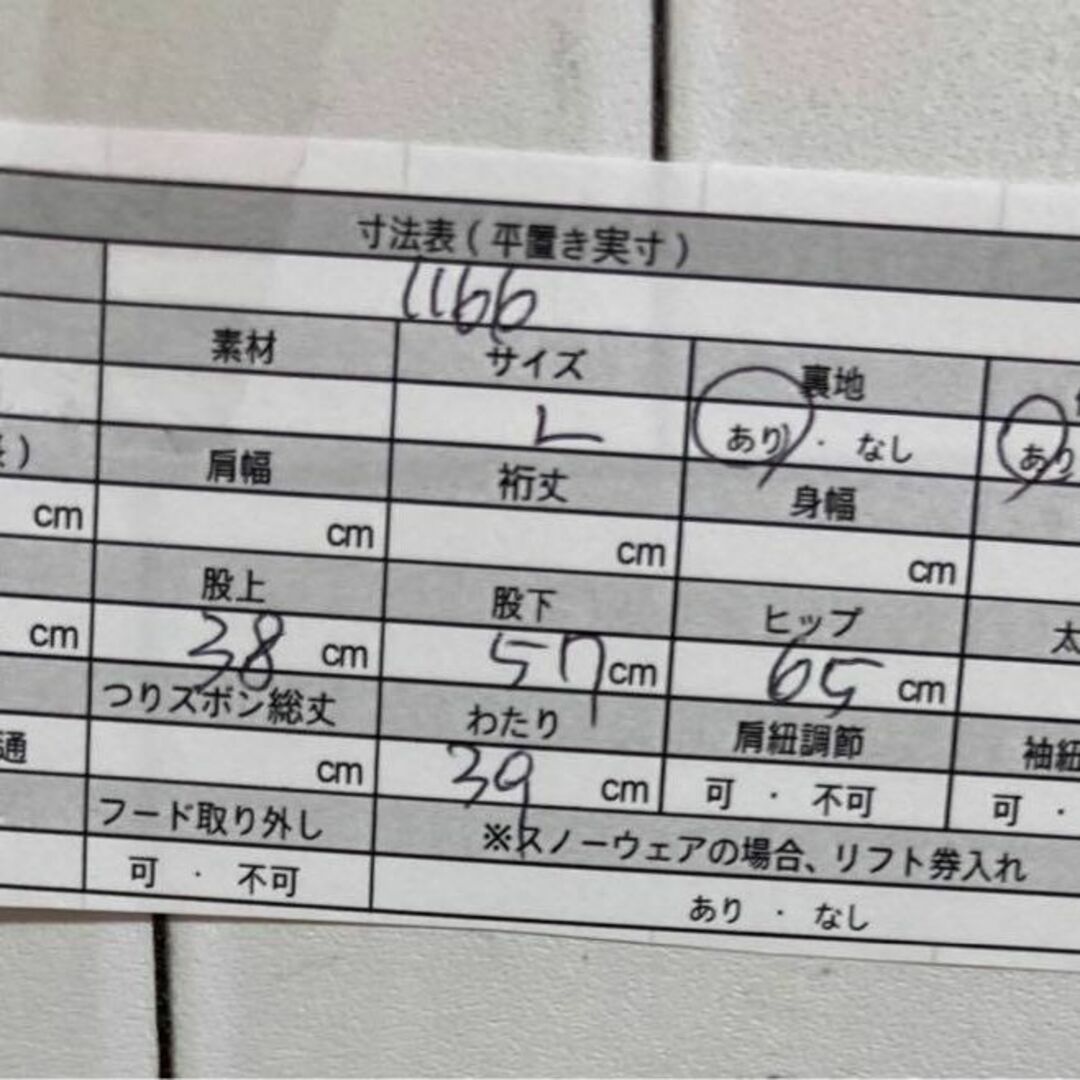 寸法表(平置き実寸)
1166
素材 サイズ 裏地
L あり ・ なし あり
) 肩幅 裄丈 身幅
cm cm cm cm
股上 股下 ヒップ 太
cm 38 cm 57 cm 65 cm
つりズボン総丈 わたり 肩紐調節 袖紐
通 cm 39 cm 可 ・ 不可 可 ・
フード取り外し ※スノーウェアの場合、リフト券入れ
可 ・ 不可 あり ・ なし